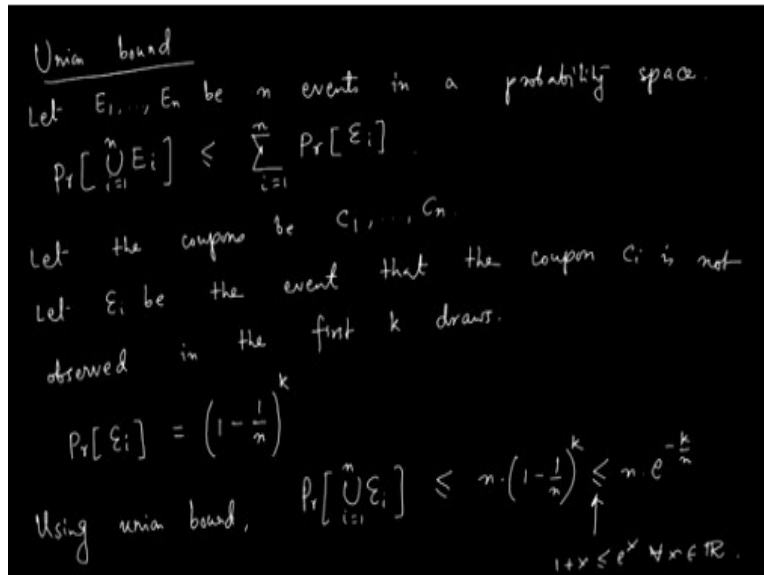 Union bound
Let E₁,..., Eₙ be n events in a probability space.
Pr[⋃ᵢ₌₁ⁿ Eᵢ] ≤ ∑ᵢ₌₁ⁿ Pr[Ɛᵢ].
Let the coupons be C₁,..., Cₙ.
Let Ɛᵢ be the event that the coupon Cᵢ is not
observed in the first k draws.
Pr[Ɛᵢ] = (1 - 1/n)ᵏ
Using union bound, Pr[⋃ᵢ₌₁ⁿ Ɛᵢ] ≤ n·(1 - 1/n)ᵏ ≤ n·e^(-k/n)
↑
1+x ≤ eˣ ∀x∈ℝ.